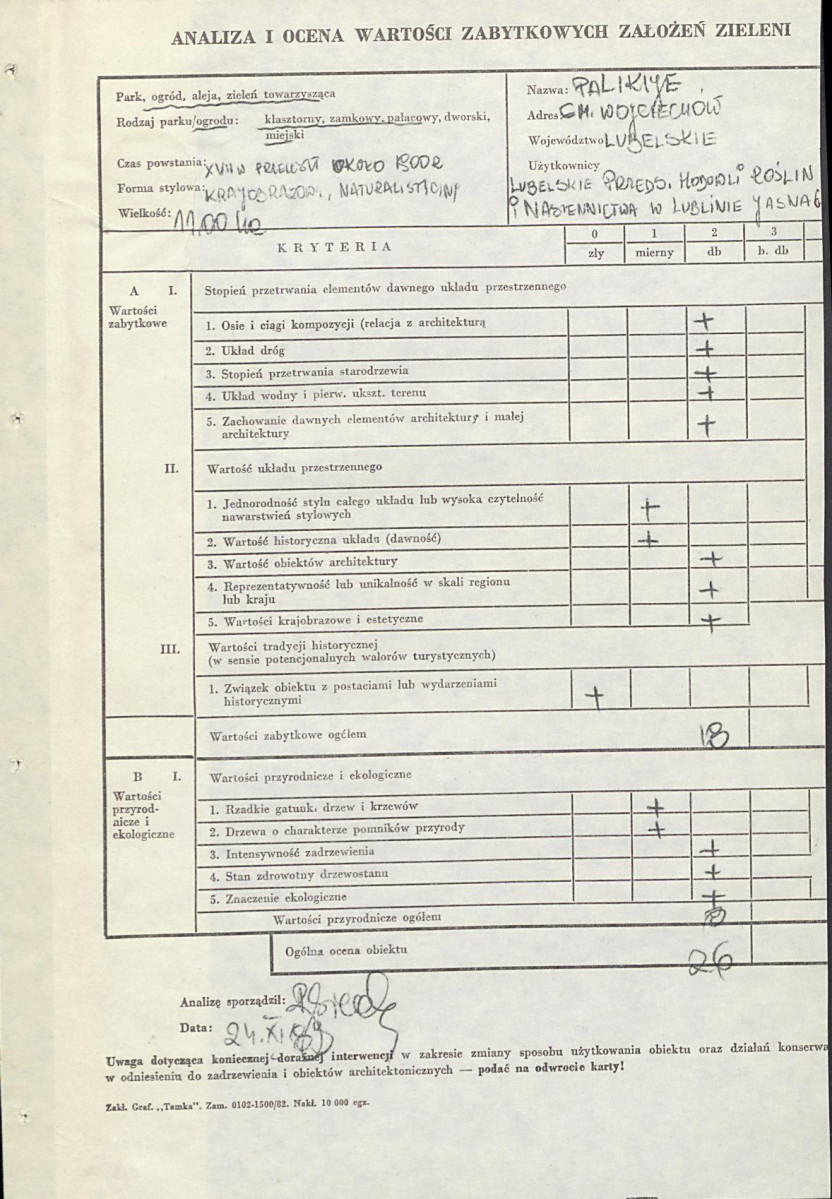 ANALIZA I OCENA WARTOŚCI ZABYTKOWYCH ZAŁOŻEŃ ZIELENI
Park, ogród, aleja, zieleń towarzysząca
Rodzaj parku/ogrodu: klasztorny, zamkowy, pałacowy, dworski,
miejski
Czas powstania: XVIII W PRZEKSZT OKOŁO 1800R
Forma stylowa: KRAJOBRAZOW., NATURALISTYCZNY
Wielkość: 11,00 ha
Nazwa: PALIKIJE
Adres GM. WOJCIECHÓW
Województwo LUBELSKIE
Użytkownicy
LUBELSKIE PRZEDS. HODOWLI ROŚLIN
I NASIENNICTWA W LUBLINIE JASNA 6
KRYTERIA
0 1 2 3
zły mierny db b. db
A I. Stopień przetrwania elementów dawnego układu przestrzennego
Wartości
zabytkowe
1. Osie i ciągi kompozycji (relacja z architekturą +
2. Układ dróg +
3. Stopień przetrwania starodrzewia +
4. Układ wodny i pierw. ukszt. terenu +
5. Zachowanie dawnych elementów architektury i małej
architektury +
II. Wartość układu przestrzennego
1. Jednorodność stylu całego układu lub wysoka czytelność
nawarstwień stylowych +
2. Wartość historyczna układu (dawność) +
3. Wartość obiektów architektury +
4. Reprezentatywność lub unikalność w skali regionu
lub kraju +
5. Wartości krajobrazowe i estetyczne +
III. Wartości tradycji historycznej
(w sensie potencjonalnych walorów turystycznych)
1. Związek obiektu z postaciami lub wydarzeniami
historycznymi +
Wartości zabytkowe ogółem 18
B I. Wartości przyrodnicze i ekologiczne
Wartości
przyrod-
nicze i
ekologiczne
1. Rzadkie gatunk. drzew i krzewów +
2. Drzewa o charakterze pomników przyrody +
3. Intensywność zadrzewienia +
4. Stan zdrowotny drzewostanu +
5. Znaczenie ekologiczne +
Wartości przyrodnicze ogółem 8
Ogólna ocena obiektu 26
Analizę sporządził:
Data: 24.XI.89
Uwaga dotycząca koniecznej doraźnej interwencji w zakresie zmiany sposobu użytkowania obiektu oraz działań konserwa
w odniesieniu do zadrzewienia i obiektów architektonicznych — podać na odwrocie karty!
Zakł. Graf. „Tamka". Zam. 0102-1500/82. Nakł. 10 000 egz.